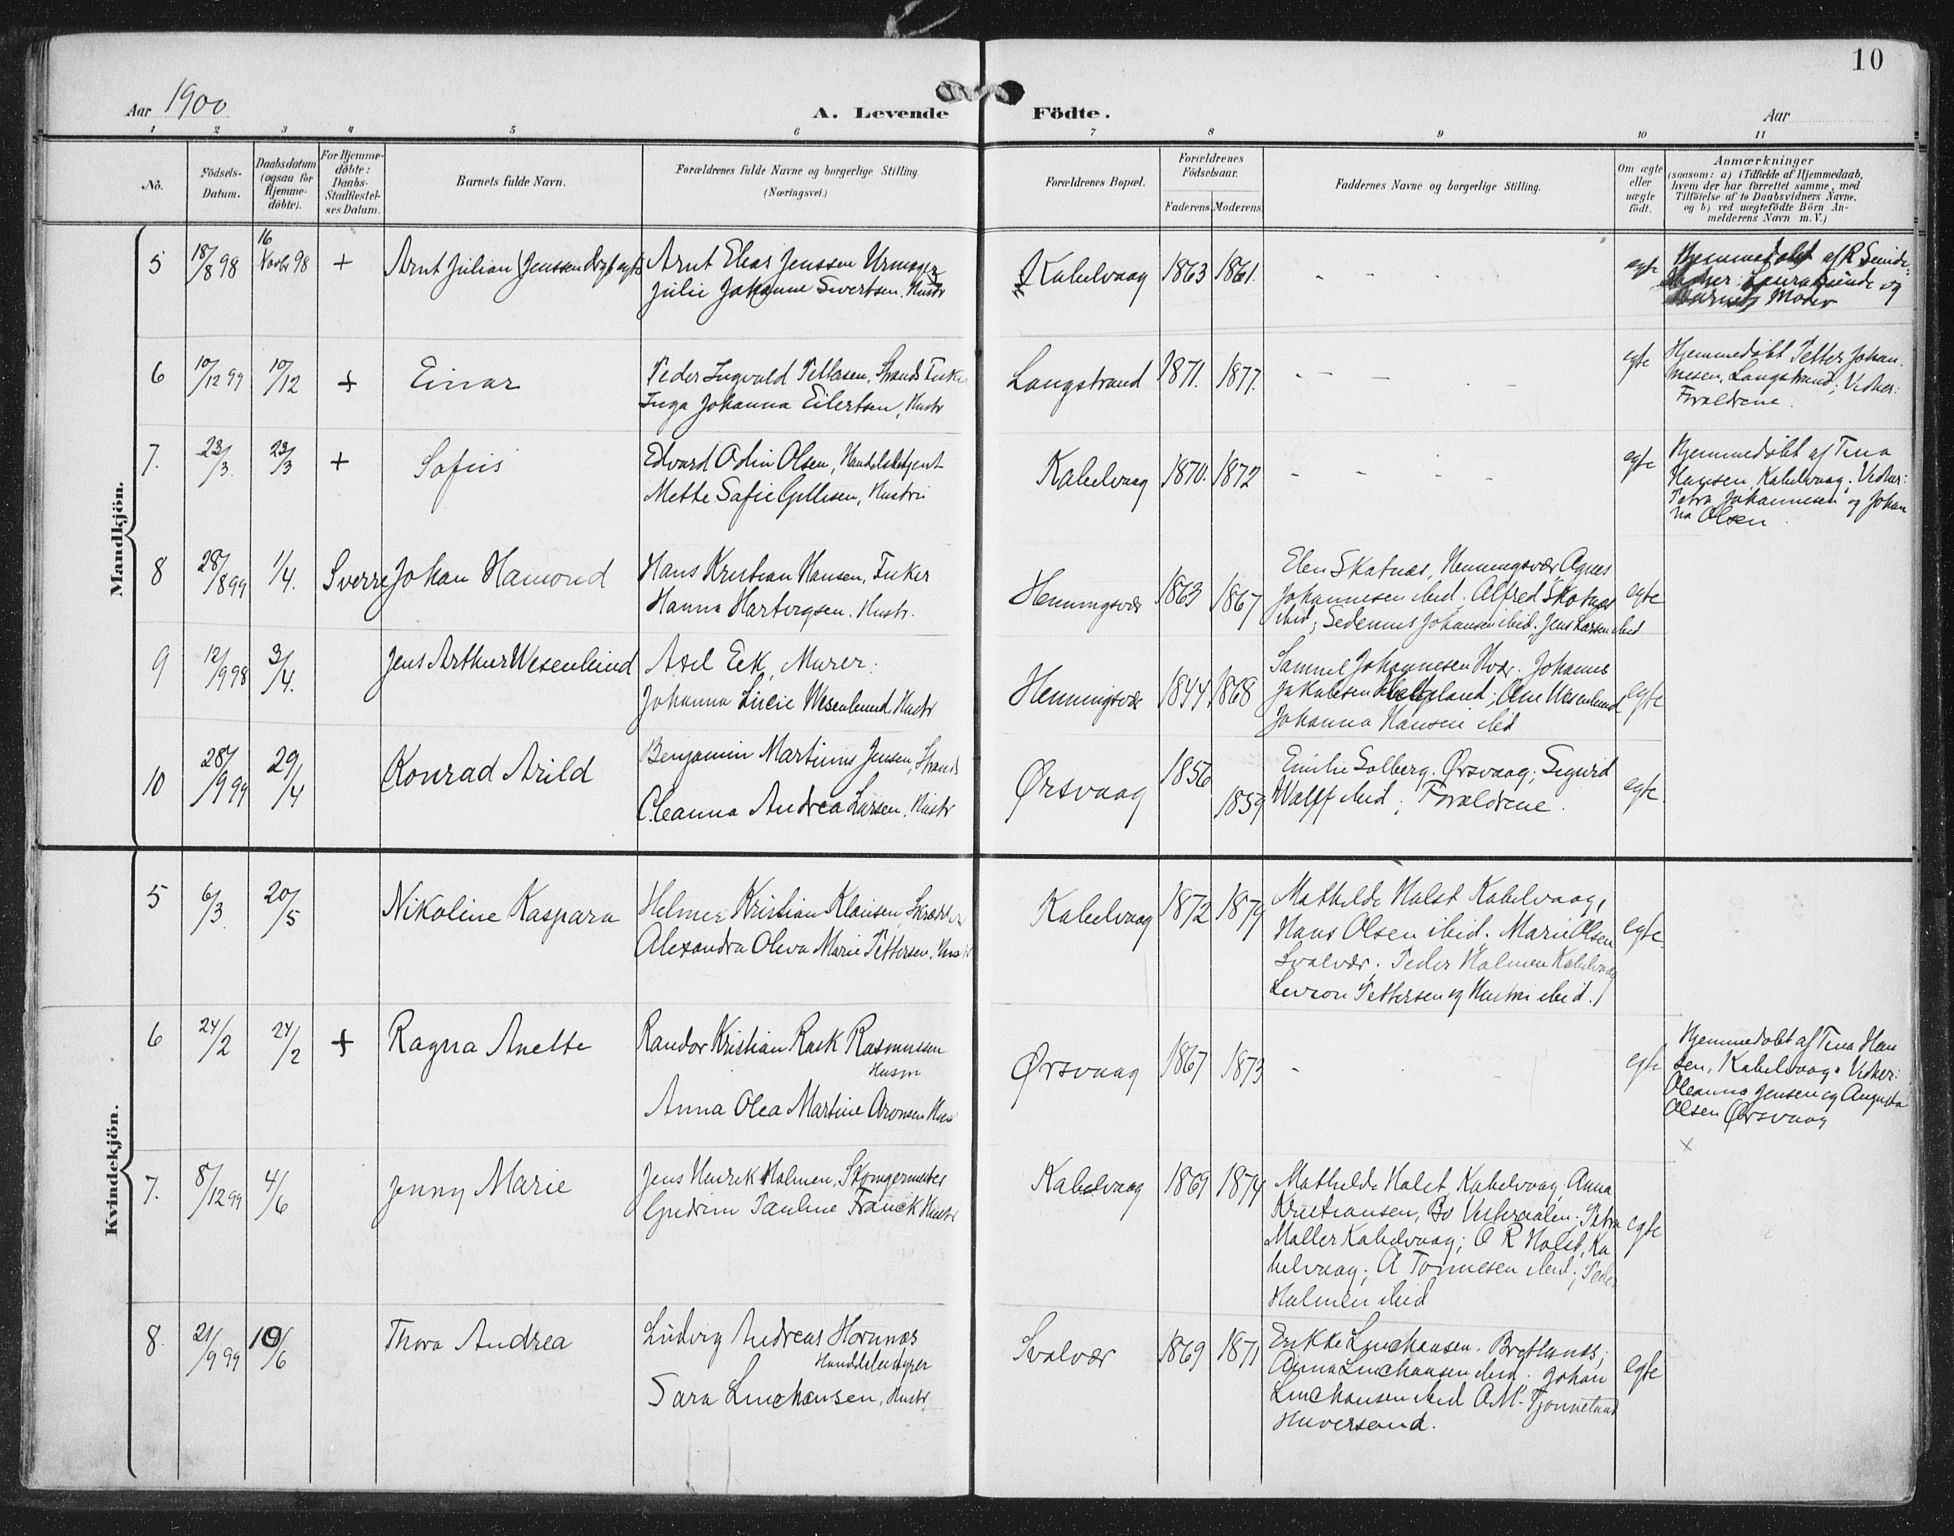 10
Aar 1900
A. Levende Födte.
Aar
1 2 3 4 5 6 7 8 9 10 11
No.
Födsels-
Datum.
Daabsdatum
(ogsaa for
Hjemme-
döbte).
For Hjemme-
döbte:
Daabs-
Stadfæstel-
ses Datum.
Barnets fulde Navn.
Forældrenes fulde Navne og borgerlige Stilling
(Næringsvei.)
Forældrenes Bopæl.
Forældrenes
Födselsaar.
Faderens. Moderens.
Faddernes Navne og borgerlige Stilling.
Om ægte
eller
uægte
födt.
Anmærkninger
(saasom: a) i Tilfælde af Hjemmedaab,
hvem der har forrettet samme, med
Tilföielse af to Daabsvidners Navne,
og b) ved uægtefödte Börn An-
melderens Navn m. V.)
Mandkjön.
5 18/8 98 16 Novbr 98 + Arnt Julian (Jenssen
Arnt Elias Jenssen Urmager
Julie Johanne Sivertsen, Hustr
Kabelvaag 1863 1861. - - egte
Hjemmedøbt af R Sunde.
Laura Sunde og
Barnets Moder
6 10/12 99 10/12 + Einar
Peder Ingvald Pettersen, Strands Fisker
Inga Johanna Eilertsen, Hustr
Langstrand 1871. 1877. - - - - - egte
Hjemmedøbt Petter Johan-
nesen, Langstrand; Vidner:
Forældrene.
7. 23/3. 23/3 + Sofus
Edvard Odin Olsen, Handelsbetjent
Mette Safie Gillesen, Hustru
Kabelvaag 1870. 1872 - - - - egte
Hjemmedøbt af Tina
Hansen, Kabelvaag. Vidner:
Petra Johannesen og Johan
na Olsen
8 28/8 99 1/4. Sverre Johan Hamond
Hans Kristian Hansen, Fisker
Hanna Hartvigsen. Hustr.
Henningsvær 1863 1867
Elen Skatnæs, Henningsvær Agnes
Johannesen ibid. Alfred Skotnæs
ibid; Sedenius Johansen ibid. Jens Larsen ibid
egte
9 12/9 98 3/4. Jens Arthur Wesenlund
Axel Eek, Murer.
Johanna Lucie Wesenlund. Hustr
Henningsvær 1844 1868
Samuel Johannesen Hvær. Johanne
Jakobsen Helgeland; Olene Wesenlund
Johanna Hansen ibid
egte
10 28/9 99 29/4 Konrad Arild
Benjamin Martinus Jensen, Strands
Oleanna Andrea Larsen, Hustr
Ørsvaag 1856 1859
Emilie Solberg. Ørsvaag; Sigurd
Wolff ibid; Forældrene.
egte
Kvindekjön.
5 6/3. 20/5 Nikoline Kaspara
Helmer Kristian Klausen, Skrædder
Alexandra Oleva Marie Pettersen. Hustr
Kabelvaag 1872 1879
Mathilde Holst Kabelvaag,
Hans Olsen ibid. Marie Olsen
Svolvær. Peder Holmen Kabelvaag
Levion Pettersen og Hustru ibid.
egte
6 24/2 24/2 + Ragna Anette
Randor Kristian Rask Rasmussen
Husm
Anna Olea Martine Aronsen Hustr
Ørsvaag 1867 1873 - egte
Hjemmedøbt af Tina Han
sen, Kabelvaag. Vidner:
Oleanna Jensen og Augusta
Olsen Ørsvaag
x
7. 8/12 99 4/6 Jenny Marie
Jens Henrik Holmen, Stomgermester
Gudrun Pauline Franck Hustr
Kabelvaag 1869 1874
Mathilde Holst, Kabelvaag, Anna
Kristiansen, Bø Vesteraalen; Petra
Møller Kabelvaag; O R Holst, Ka
belvaag; A Tønnesen ibid; Peder
Holmen ibid
egte
8. 21/9 99 10/6 Thora Andrea
Ludvig Andreas Hornnæs
Handelsbestyrer
Sara Linchausen, Hustr
Svolvær 1869 1871
Erikke Linchausen. Brettesnæs;
Anna Linchausen ibid. Johan
Linchausen ibid A M. Tjønneland
egte